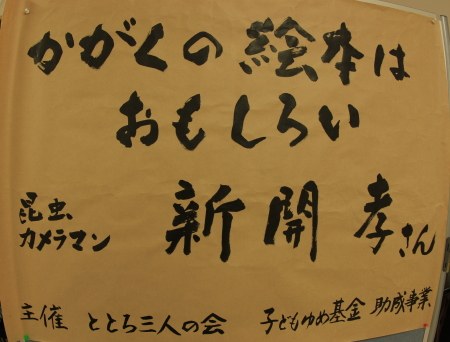 かがくの絵本は
おもしろい
昆虫
カメラマン 新開孝さん
主催 ととろ三人の会 子どもゆめ基金 助成事業